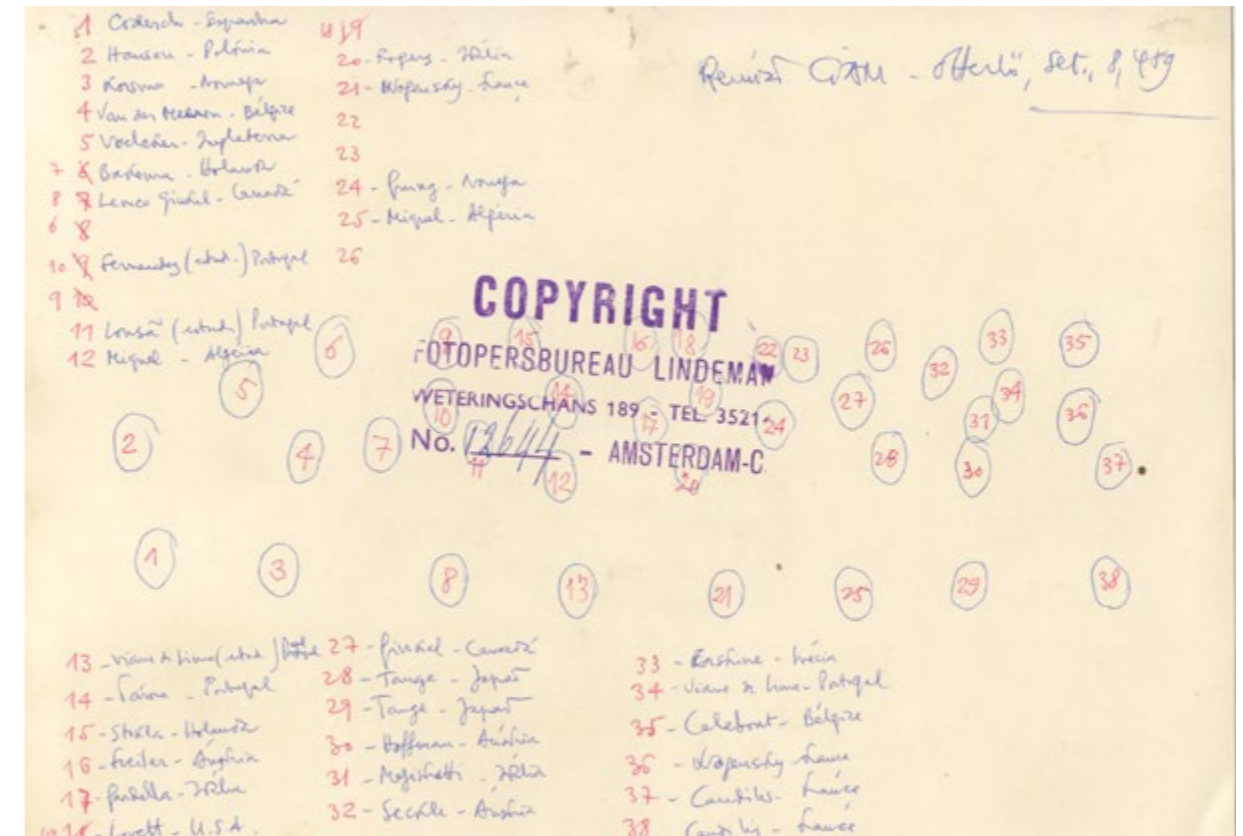 1 Coderch - Espanha
2 Hansen - Polónia
3 Korsmo - Noruega
4 Van der Meeren - Bélgica
5 Voelcker - Inglaterra
7 6 Bakema - Holanda
8 7 - Canadá
6 8
10 9 Fernandez (estud.) Portugal
9 10
11 Lousã (estud.) Portugal
12 Miquel - Algéria
19
20 - Rogers - Itália
21 - Wogenscky - France
22
23
24 - Grung - Noruega
25 - Miquel - Algéria
26
Reunião CIAM - Otterlö, set., 8, 959
COPYRIGHT
FOTOPERSBUREAU LINDEMAN
WETERINGSCHANS 189 - TEL. 3521
No. 12644 - AMSTERDAM-C.
6 9 15 16 18 22 23 26 33 35
5 14 19 27 32 34
2 4 7 10 17 24 28 31 36
11 12 20 30 37
1 3 8 13 21 25 29 38
13 - Viana de Lima (estud.)
14 - Távora - Portugal
15 - Holanda
16 - Áustria
17 - Gardella - Itália
18 - Lovett - U.S.A.
27 - Canadá
28 - Tange - Japão
29 - Tange - Japão
30 - Hoffman - Áustria
31 - Magistretti - Itália
32 - Áustria
33 - Erskine - Suécia
34 - Viana de Lima - Portugal
35 - Bélgica
36 - Wogenscky France
37 - Candilis - France
38 Candilis - France